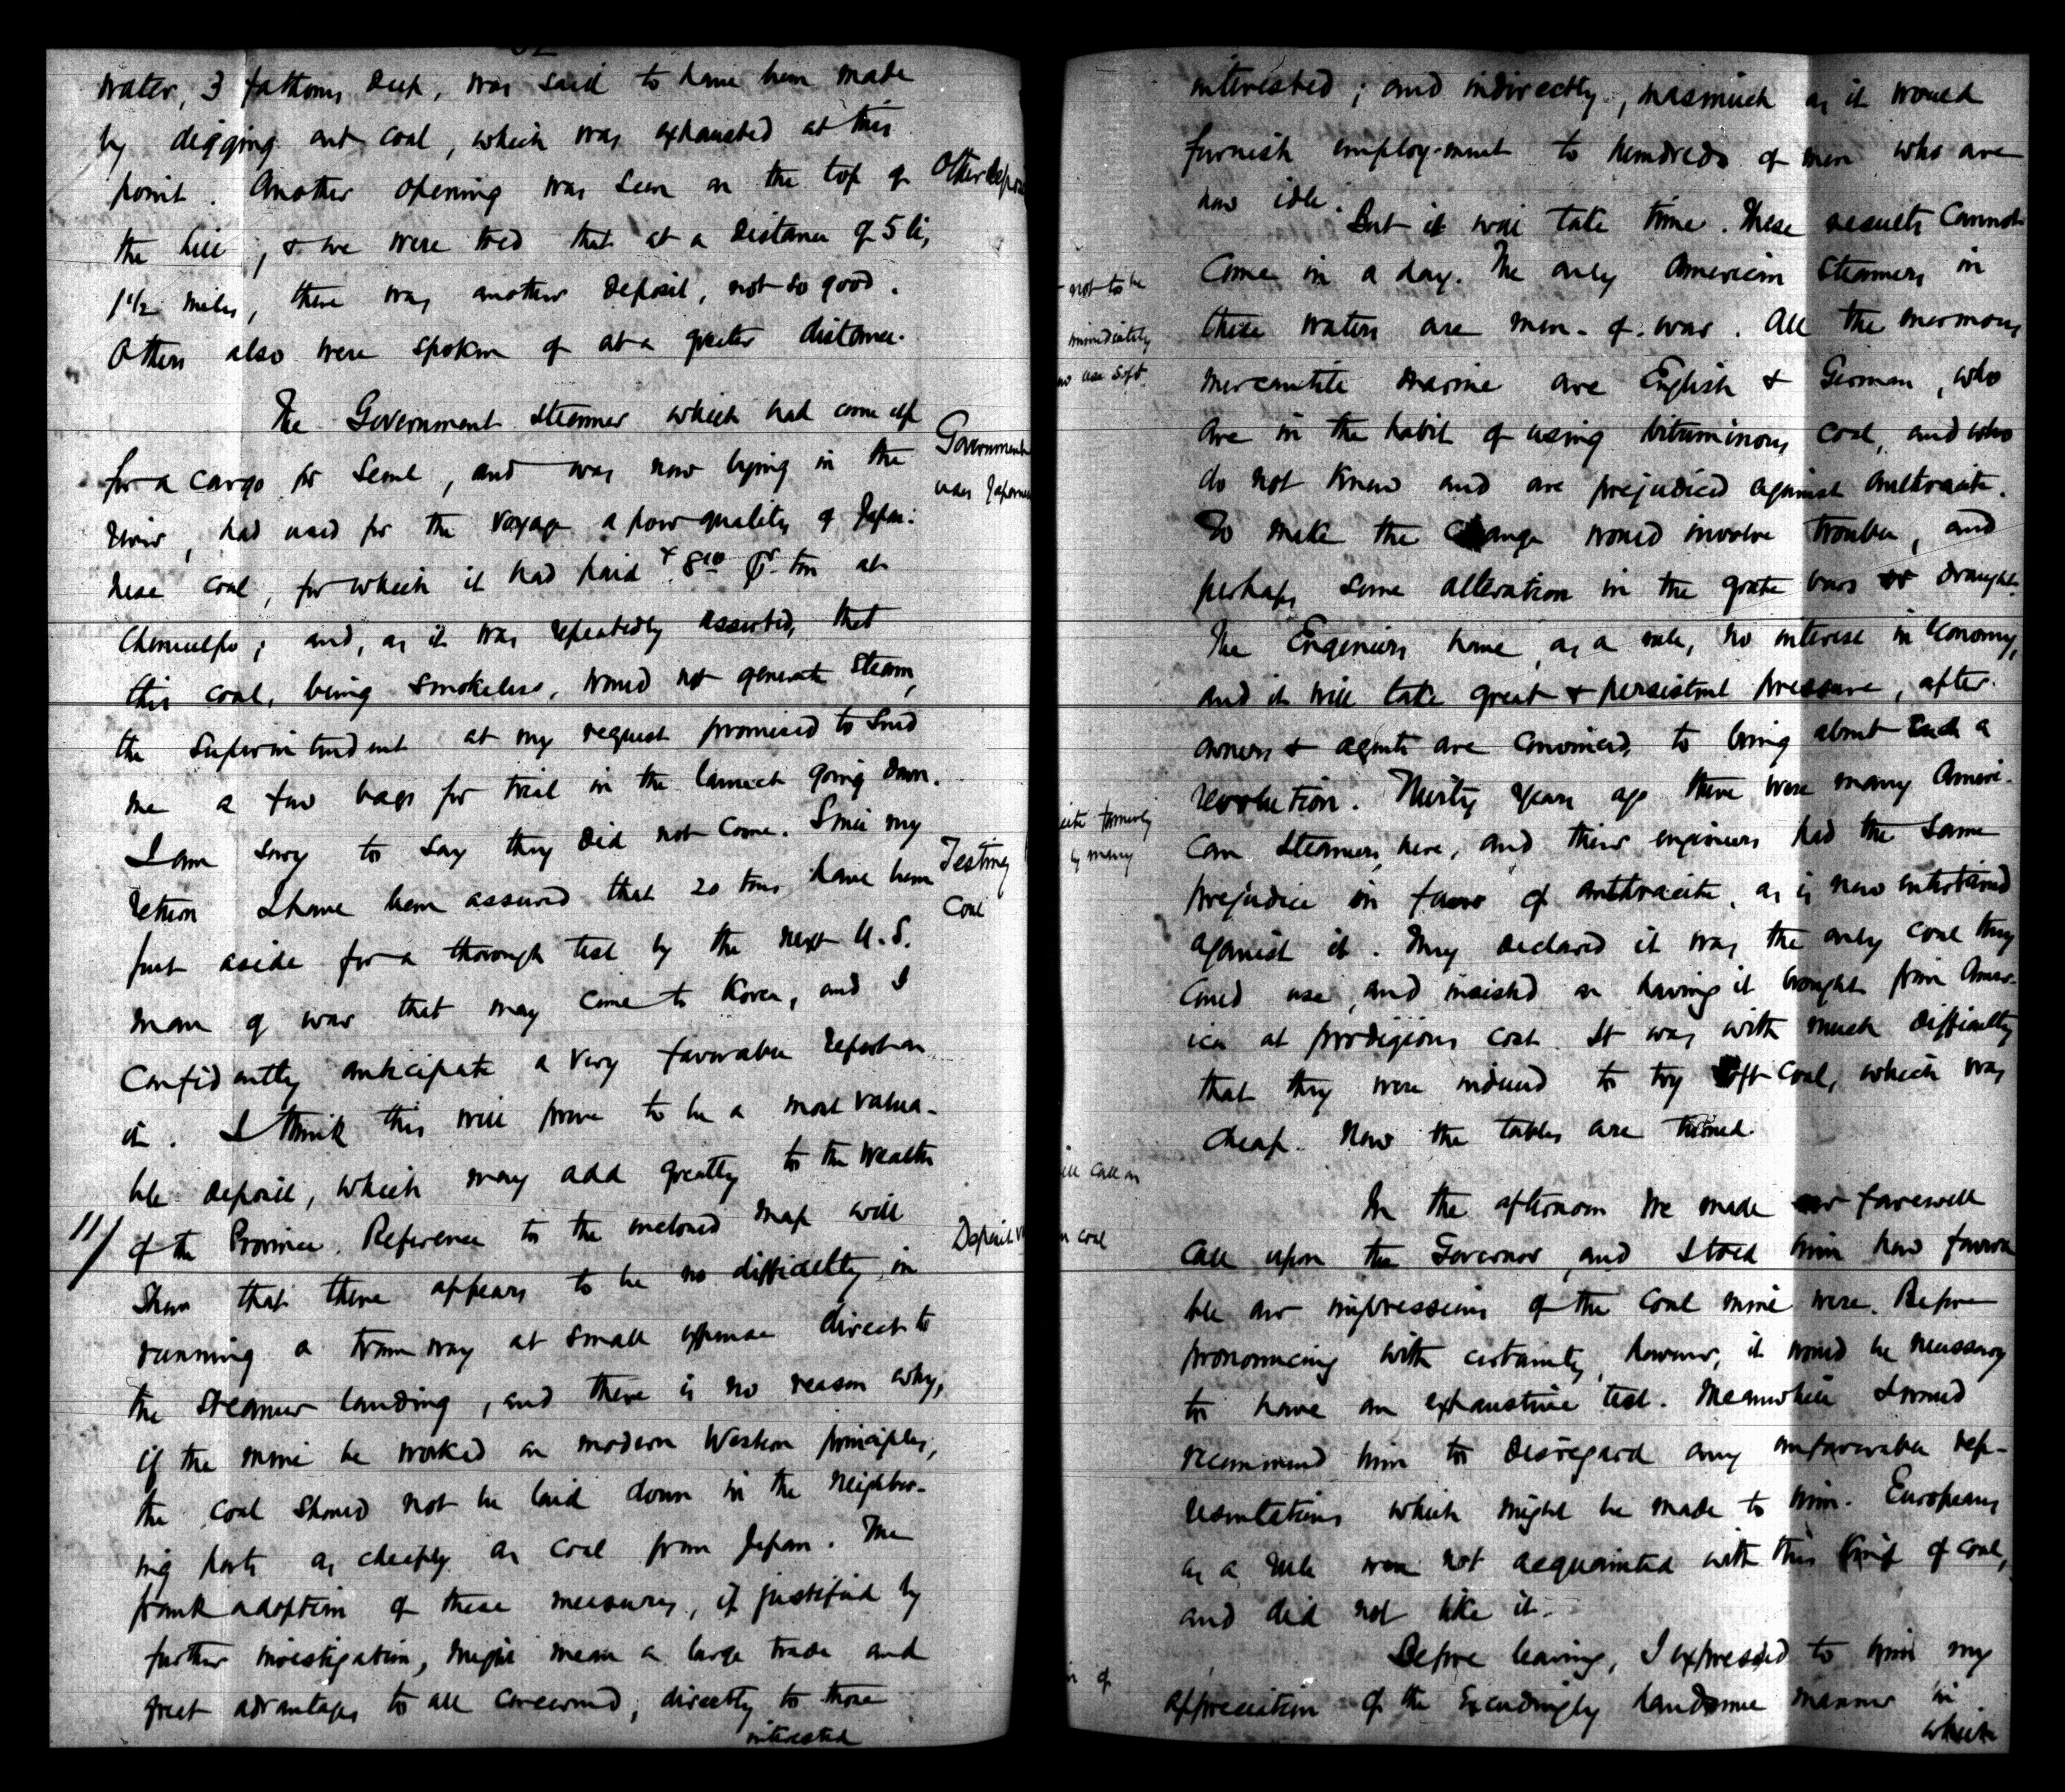 water, 3 fathoms deep, was said to have been made
by digging out coal, which was exhausted at this
point. Another opening was seen on the top of
Other deposi
the hill; & we were told that at a distance of 5 li,
1 1/2 miles, there was another deposit, not so good.
Others also were spoken of at a greater distance.
The Government steamer which had come up
Government
for a cargo for Seoul, and was now lying in the
uses Japanese
river, had used for the voyage a poor quality of Japa-
nese coal, for which it had paid $8.00 pr ton at
Chemulpo; and, as it was repeatedly asserted, that
this coal, being smokeless, would not generate steam,
the Superintendent at my request promised to send
me a few bags for trial in the launch going down.
I am sorry to say they did not come. Since my
Testing
return I have been assured that 20 tons have been
Coal
put aside for a thorough test by the next U.S.
man of war that may come to Korea, and I
confidently anticipate a very favorable report on
it. I think this will prove to be a most valua-
ble deposit, which may add greatly to the wealth
11/ of the Province. Reference to the enclosed map will
Deposit v
show that there appears to be no difficulty in
running a tramway at small expense direct to
the steamer landing, and there is no reason why,
if the mine be worked on modern Western principles,
the coal should not be laid down in the neighbor-
ing ports as cheaply as coal from Japan. The
prompt adoption of these measures, if justified by
further investigation, might mean a large trade and
great advantages to all concerned; directly to those
interested
interested; and indirectly, inasmuch as it would
furnish employ-ment to hundreds of men who are
now idle.
But it will take time. These results cannot
not to be
come in a day. The only American steamers in
immediately
these waters are men-of-war. All the enormous
use soft
mercantile marine are English & German, who
are in the habit of using bituminous coal, and who
do not know and are prejudiced against anthracite.
To make the change would involve trouble, and
perhaps some alteration in the grate bars or draught.
The Engineers have, as a rule, no interest in economy,
and it will take great & persistent pressure, after
owners & agents are convinced, to bring about such a
revolution. Thirty years ago there were many Ameri-
cite formerly
can steamers here, and their engineers had the same
by many
prejudice in favor of anthracite, as is now entertained
against it. They declared it was the only coal they
could use, and insisted on having it brought from Amer-
ica at prodigious cost. It was with much difficulty
that they were induced to try soft coal, which was
cheap. Now the tables are turned.
ll call on
In the afternoon we made our farewell
n coal
call upon the Governor, and I told him how favora
ble our impressions of the coal mine were. Before
pronouncing with certainty, however, it would be necessary
to have an exhaustive test. Meanwhile I would
recommend him to disregard any unfavorable rep-
resentations which might be made to him. Europeans
as a rule were not acquainted with this kind of coal,
and did not like it.
Before leaving, I expressed to him my
n of
appreciation of the exceedingly handsome manner in
which